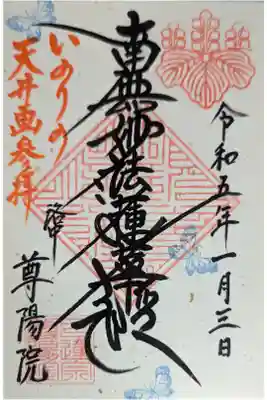 令和五年一月三日
南無妙法蓮華経
いのりの
天井画参拝
尊陽院